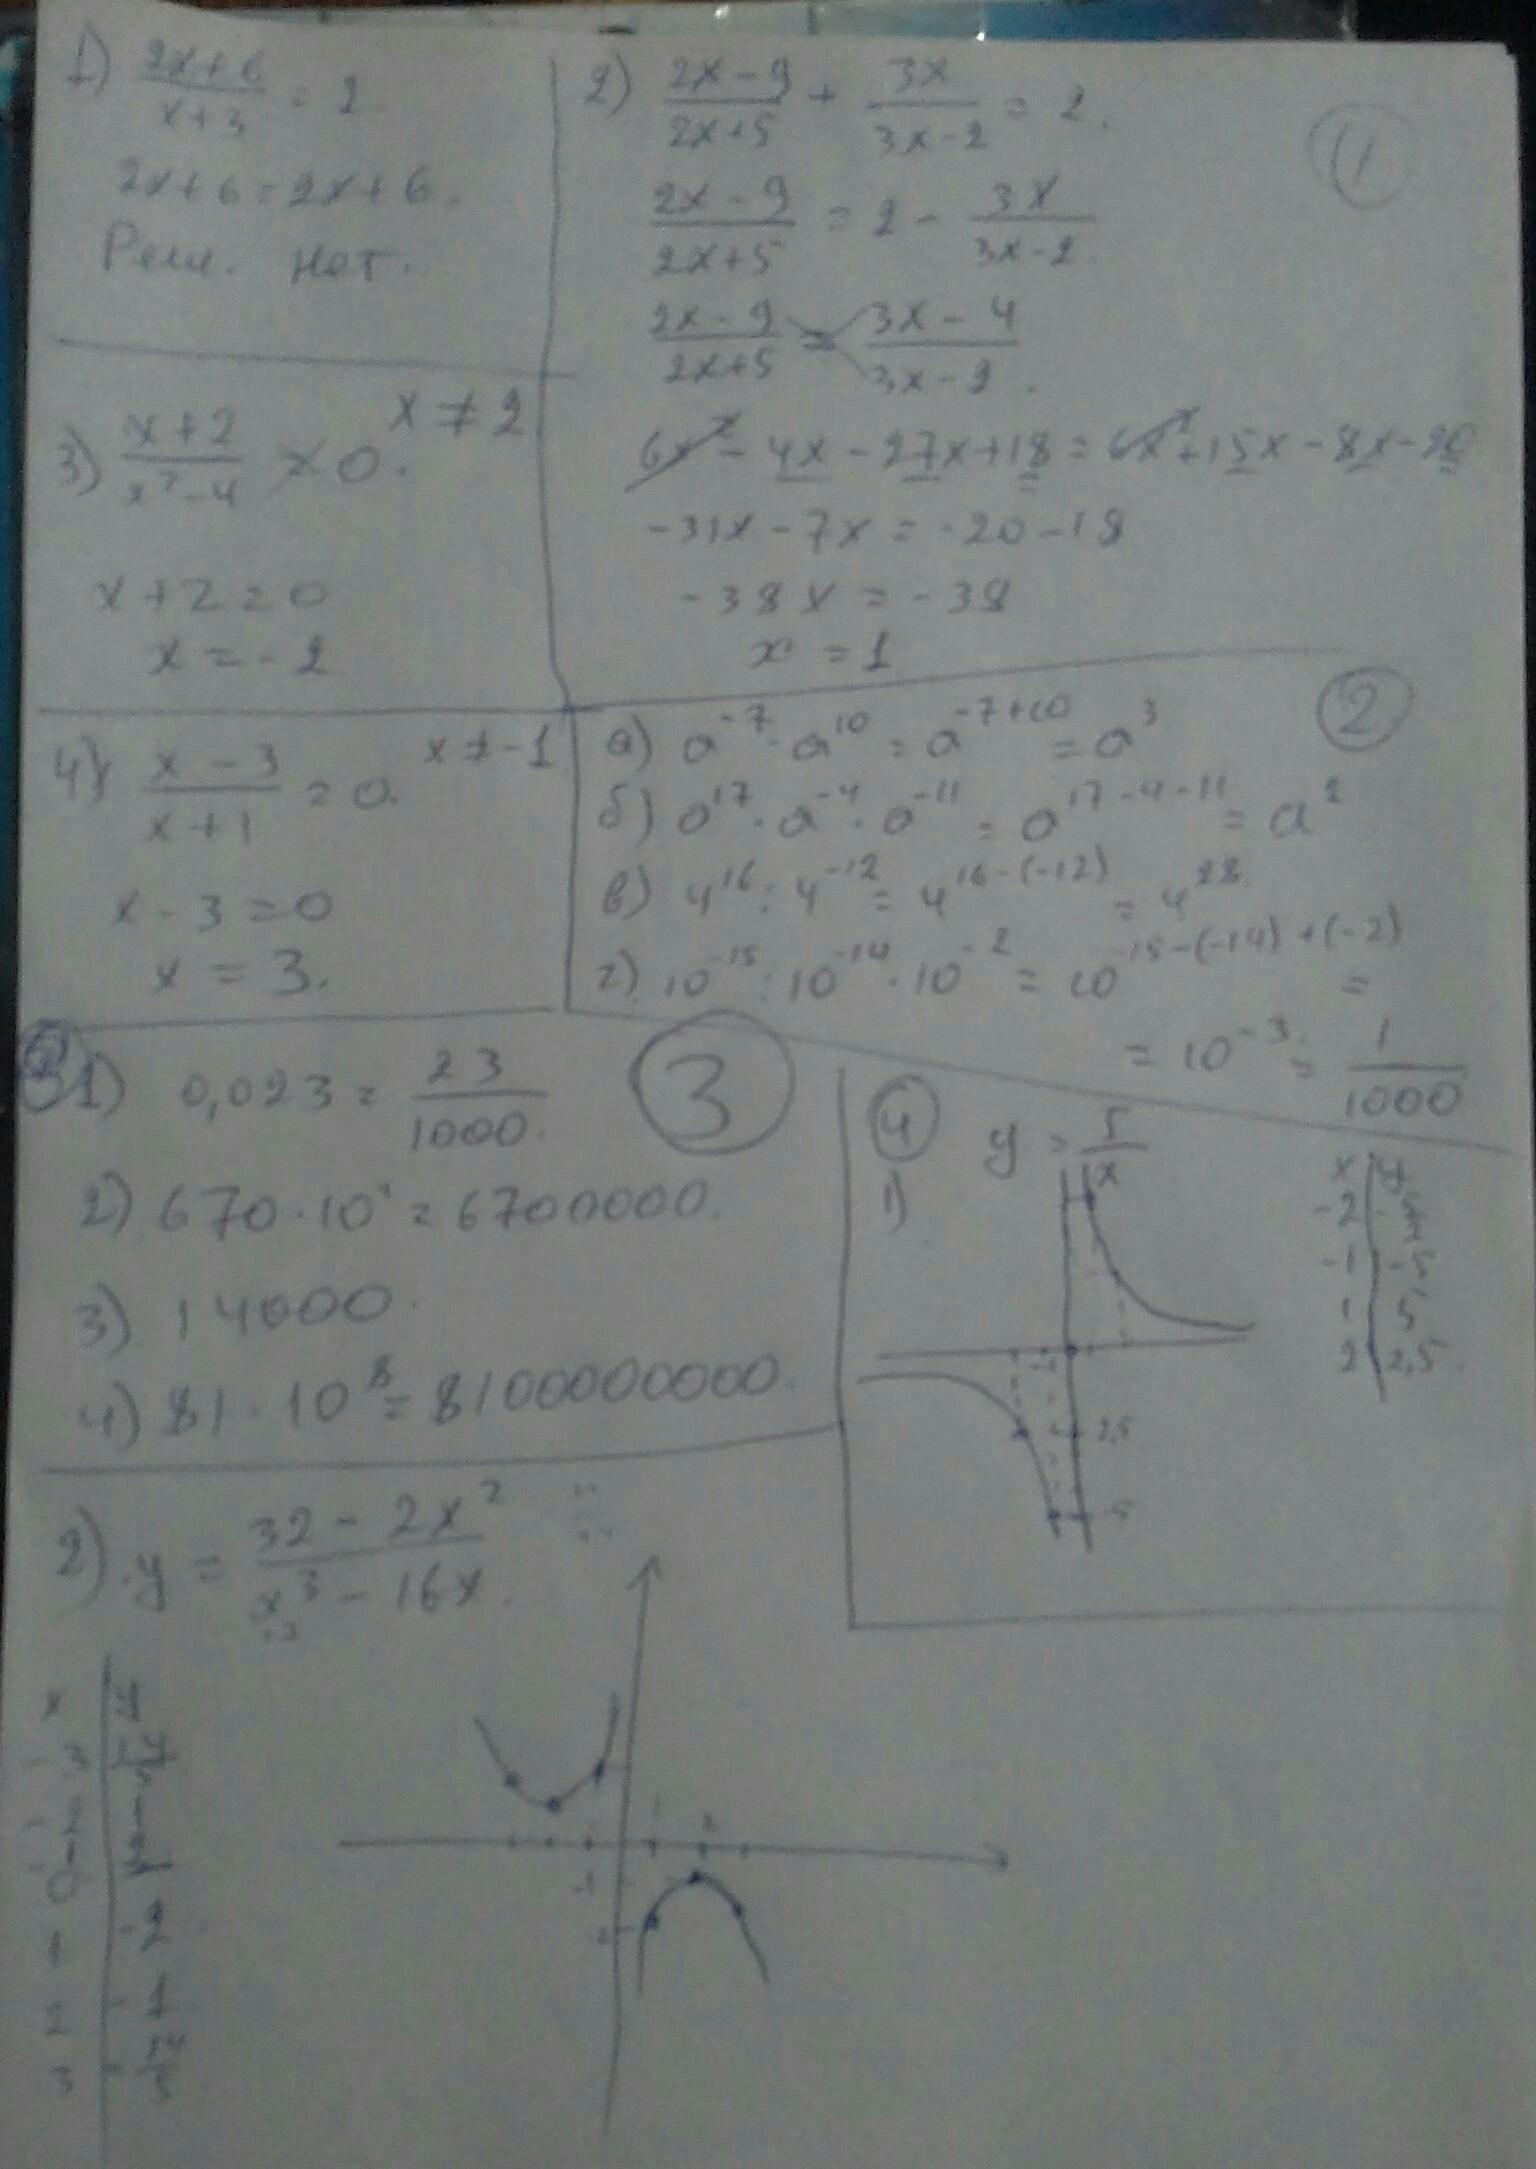 1) (2x+6)/(x+3) = 2.
2x+6=2x+6.
Реш. нет.
2) (2x-9)/(2x+5) + 3x/(3x-2) = 2.
(2x-9)/(2x+5) = 2 - 3x/(3x-2)
(2x-9)/(2x+5) = (3x-4)/(3x-2).
6x² - 4x - 27x + 18 = 6x² + 15x - 8x - 20
-31x - 7x = -20 - 18
-38x = -38
x = 1
1
3) (x+2)/(x²-4) = 0. x ≠ 2
x+2=0
x = -2
4) (x-3)/(x+1) = 0. x ≠ -1
x-3=0
x = 3.
2
а) a⁻⁷ · a¹⁰ = a⁻⁷⁺¹⁰ = a³
б) a¹⁷ · a⁻⁴ · a⁻¹¹ = a¹⁷⁻⁴⁻¹¹ = a²
в) 4¹⁶ : 4⁻¹² = 4¹⁶⁻⁽⁻¹²⁾ = 4²⁸
г) 10⁻¹⁵ : 10⁻¹⁴ · 10⁻² = 10⁻¹⁵⁻⁽⁻¹⁴⁾⁺⁽⁻²⁾ =
= 10⁻³ = 1/1000
3
1) 0,023 = 23/1000.
2) 670 · 10 = 6700000.
3) 14000.
4) 81 · 10⁸ = 8100000000.
4
1) y = 5/x
x y
-2
-1 -5
1 5
2 2,5
-1
2,5
-5
2) y = (32 - 2x²)/(x³ - 16x).
x y
-3
-2
1 -2
2 -1
3
1 2
-1
2